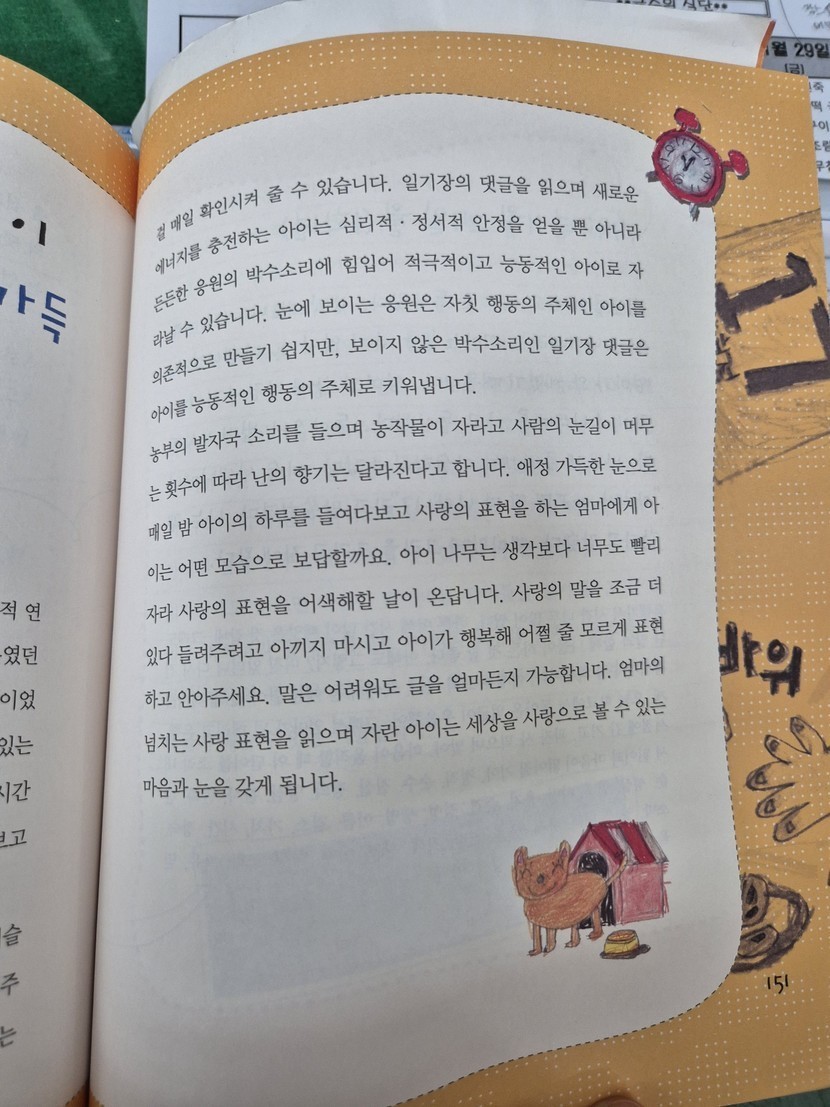 걸 매일 확인시켜 줄 수 있습니다. 일기장의 댓글을 읽으며 새로운
에너지를 충전하는 아이는 심리적·정서적 안정을 얻을 뿐 아니라
든든한 응원의 박수소리에 힘입어 적극적이고 능동적인 아이로 자
라날 수 있습니다. 눈에 보이는 응원은 자칫 행동의 주체인 아이를
의존적으로 만들기 쉽지만, 보이지 않은 박수소리인 일기장 댓글은
아이를 능동적인 행동의 주체로 키워냅니다.
농부의 발자국 소리를 들으며 농작물이 자라고 사람의 눈길이 머무
는 횟수에 따라 난의 향기는 달라진다고 합니다. 애정 가득한 눈으로
매일 밤 아이의 하루를 들여다보고 사랑의 표현을 하는 엄마에게 아
이는 어떤 모습으로 보답할까요. 아이 나무는 생각보다 너무도 빨리
자라 사랑의 표현을 어색해할 날이 온답니다. 사랑의 말을 조금 더
있다 들려주려고 아끼지 마시고 아이가 행복해 어쩔 줄 모르게 표현
하고 안아주세요. 말은 어려워도 글을 얼마든지 가능합니다. 엄마의
넘치는 사랑 표현을 읽으며 자란 아이는 세상을 사랑으로 볼 수 있는
마음과 눈을 갖게 됩니다.
151
이
가득
적 연
였던
이었
있는
시간
보고
슬
주
는
월 29일
(금)